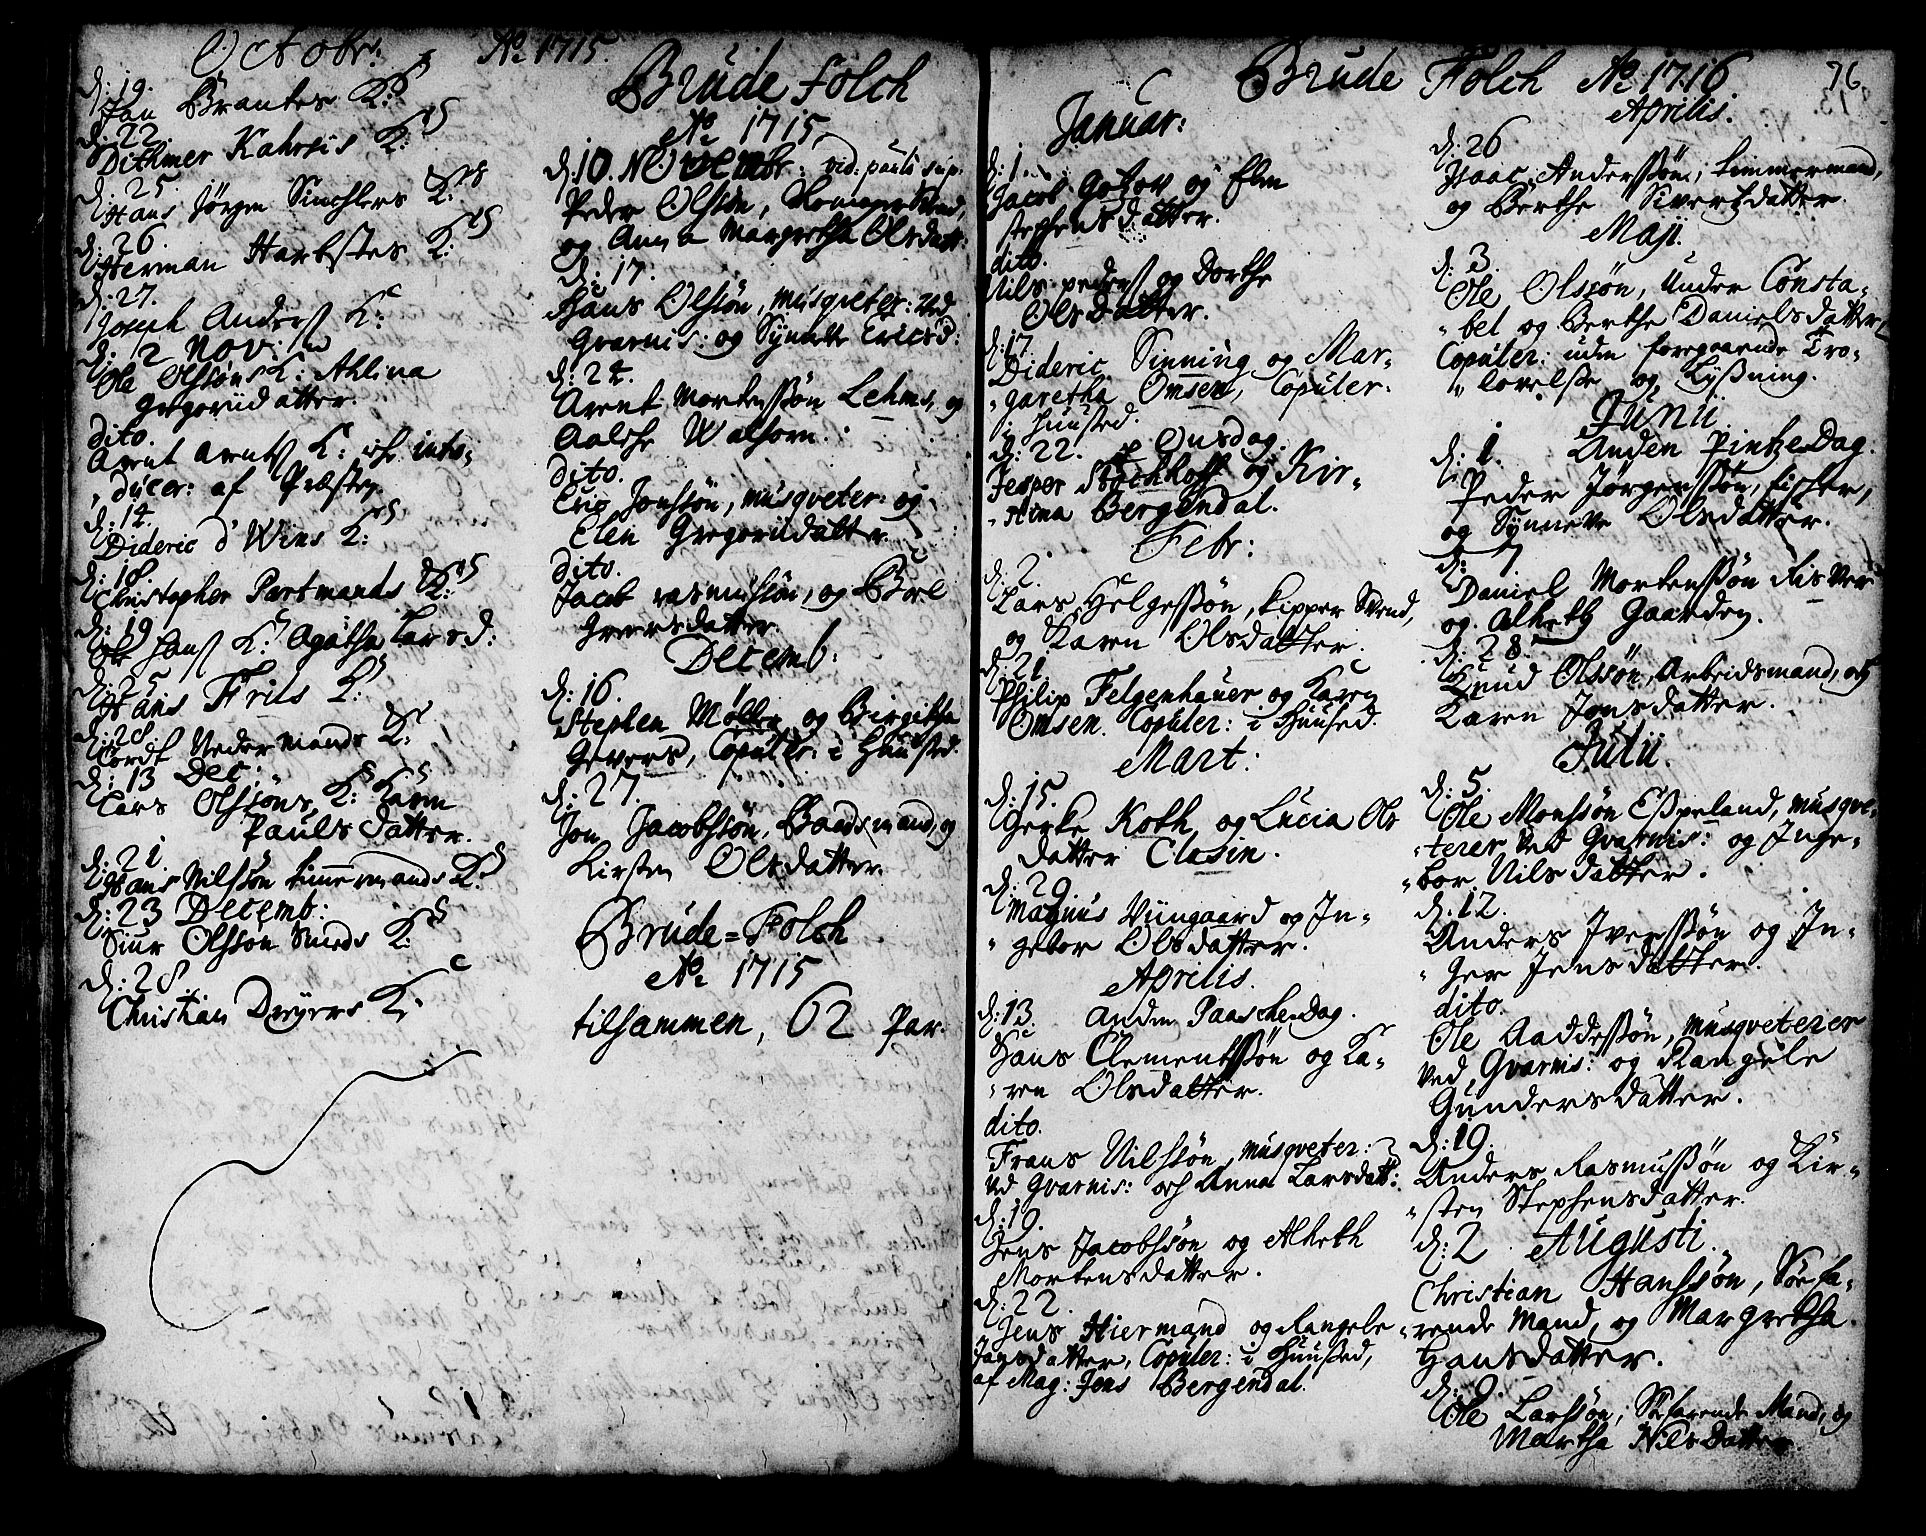 Octobr: Aº 1715.
d: 19.
Jan Brantes K:
d: 22.
Dithmer Kahrsis K:
d: 25.
Hans Jörgen Sinchlers K:
d: 26.
Herman Harbstes K:
d: 27.
Joseph Anders K:
d: 2 Nov:
Ole Olssöns K: Ahlina
Gregoriidatter.
dito.
Arent Arents K:
ducer: af Præsten
d: 14.
Dideric d'Wins K:
d: 18
Christopher Partmands K:
d: 19
Hans K: Agatha Larsd:
d: 25
Hans Friis K:
d: 28.
Cordt Vedermands K:
d: 13 Dec:
Lars Olssöns K: Karen
Paulsdatter.
d: 21.
Hans Nilssön timmermands K:
d: 23 Decemb:
Siur Olssön Smeds K:
d: 28.
Christian Dreyers K:
Brude folch
Aº 1715
d: 10. Novembr: vid: pauli sup.
Peder Olssön,
og Anna Margretha Olsdatt:
d: 17.
Hans Olssön, musqveter: ved
Gvarnis: og Synneve Ericsd:
d: 24.
Arent Mortenssön Lehms, og
Aalche Walhorn.
dito.
Eric Jonssön, musqveter: og
Elen Gregoriidatter
dito.
Jacob rasmussön, og Böel
Iversdatter
Decemb:
d: 16.
Stephen Möller og Birgitha
Gevers, Copuler: i Huused.
d: 27.
Jon Jacobssön, Baadsmand, og
Kirsten Olsdatter.
Brude=Folch
Aº 1715
tilsammen, 62 Par.
Brude Folch Aº 1716
76
Januar:
d: 1.
Jacob Gotzov og Elen
Stephensdatter.
dito.
Nils peders og Dorthe
Olsdatter.
d: 17
Dideric Sinning og Mar-
garetha Omsen, Copuler:
i Huused.
d: 22. Onsdag
Jesper Stochhoff og Kir-
stina Bergendal.
Febr:
d: 2.
Lars Helgessön, kipper Svend,
og Karen Olsdatter.
d: 21
Philip Felgenhauer og Karen
Omsen. Copuler: i Huused.
Mart:
d: 15.
Gerke Koth og Lucia Ols
datter Clasen.
d: 29.
Magnus Wiingaard og In-
gebor Olsdatter.
Aprilis.
d: 13 Anden Paaschedag.
Hans Clementssön og Ka-
ren Olsdatter.
dito.
Frans Nilssön, musqveter:
ved Gvarnis: och Anna Larsdatt:
d: 19.
Jens Jacobssön og Alheth
Mortensdatter.
d: 22.
Jens Hiermand og Rangele
Jansdatter, Copuler: i Huused,
af Mag: Jens Bergendal.
Aprilis.
d: 26
Isaac Anderssön, timmermand,
og Berthe Sivertzdatter.
Maji.
d: 3.
Ole Olssön, Under Consta-
bel og Berthe Danielsdatter
Copuler: uden foregaaende Tro-
lovelse og Lyssning.
Junii
d: 1. Anden PintzeDag.
Peder Jörgenssön, fischer,
og Synneve Olsdatter.
d: 7
Daniel Mortenssön Risver
og Alheth Gaarden.
d: 28.
Knud Olssön, Arbeidsmand, og
Karen Jonsdatter.
Julii.
d: 5.
Ole Monssön Espeland, musqve-
terer ved Gvarnis: og Inge-
bor Nilsdatter.
d: 12.
Anders Iverssön og In-
ger Jensdatter.
dito.
Ole Aaddessön, musqveterer
ved Gvarnis: og Rangele
Gundersdatter.
d: 19.
Anders Rasmussön og Kir-
sten Stephensdatter.
d: 2 Augusti.
Christian Hanssön, Söefa-
rende Mand, og Margretha
Hansdatter.
d: 9.
Ole Larssön, Söefarende Mand, og
Martha Nilsdatter